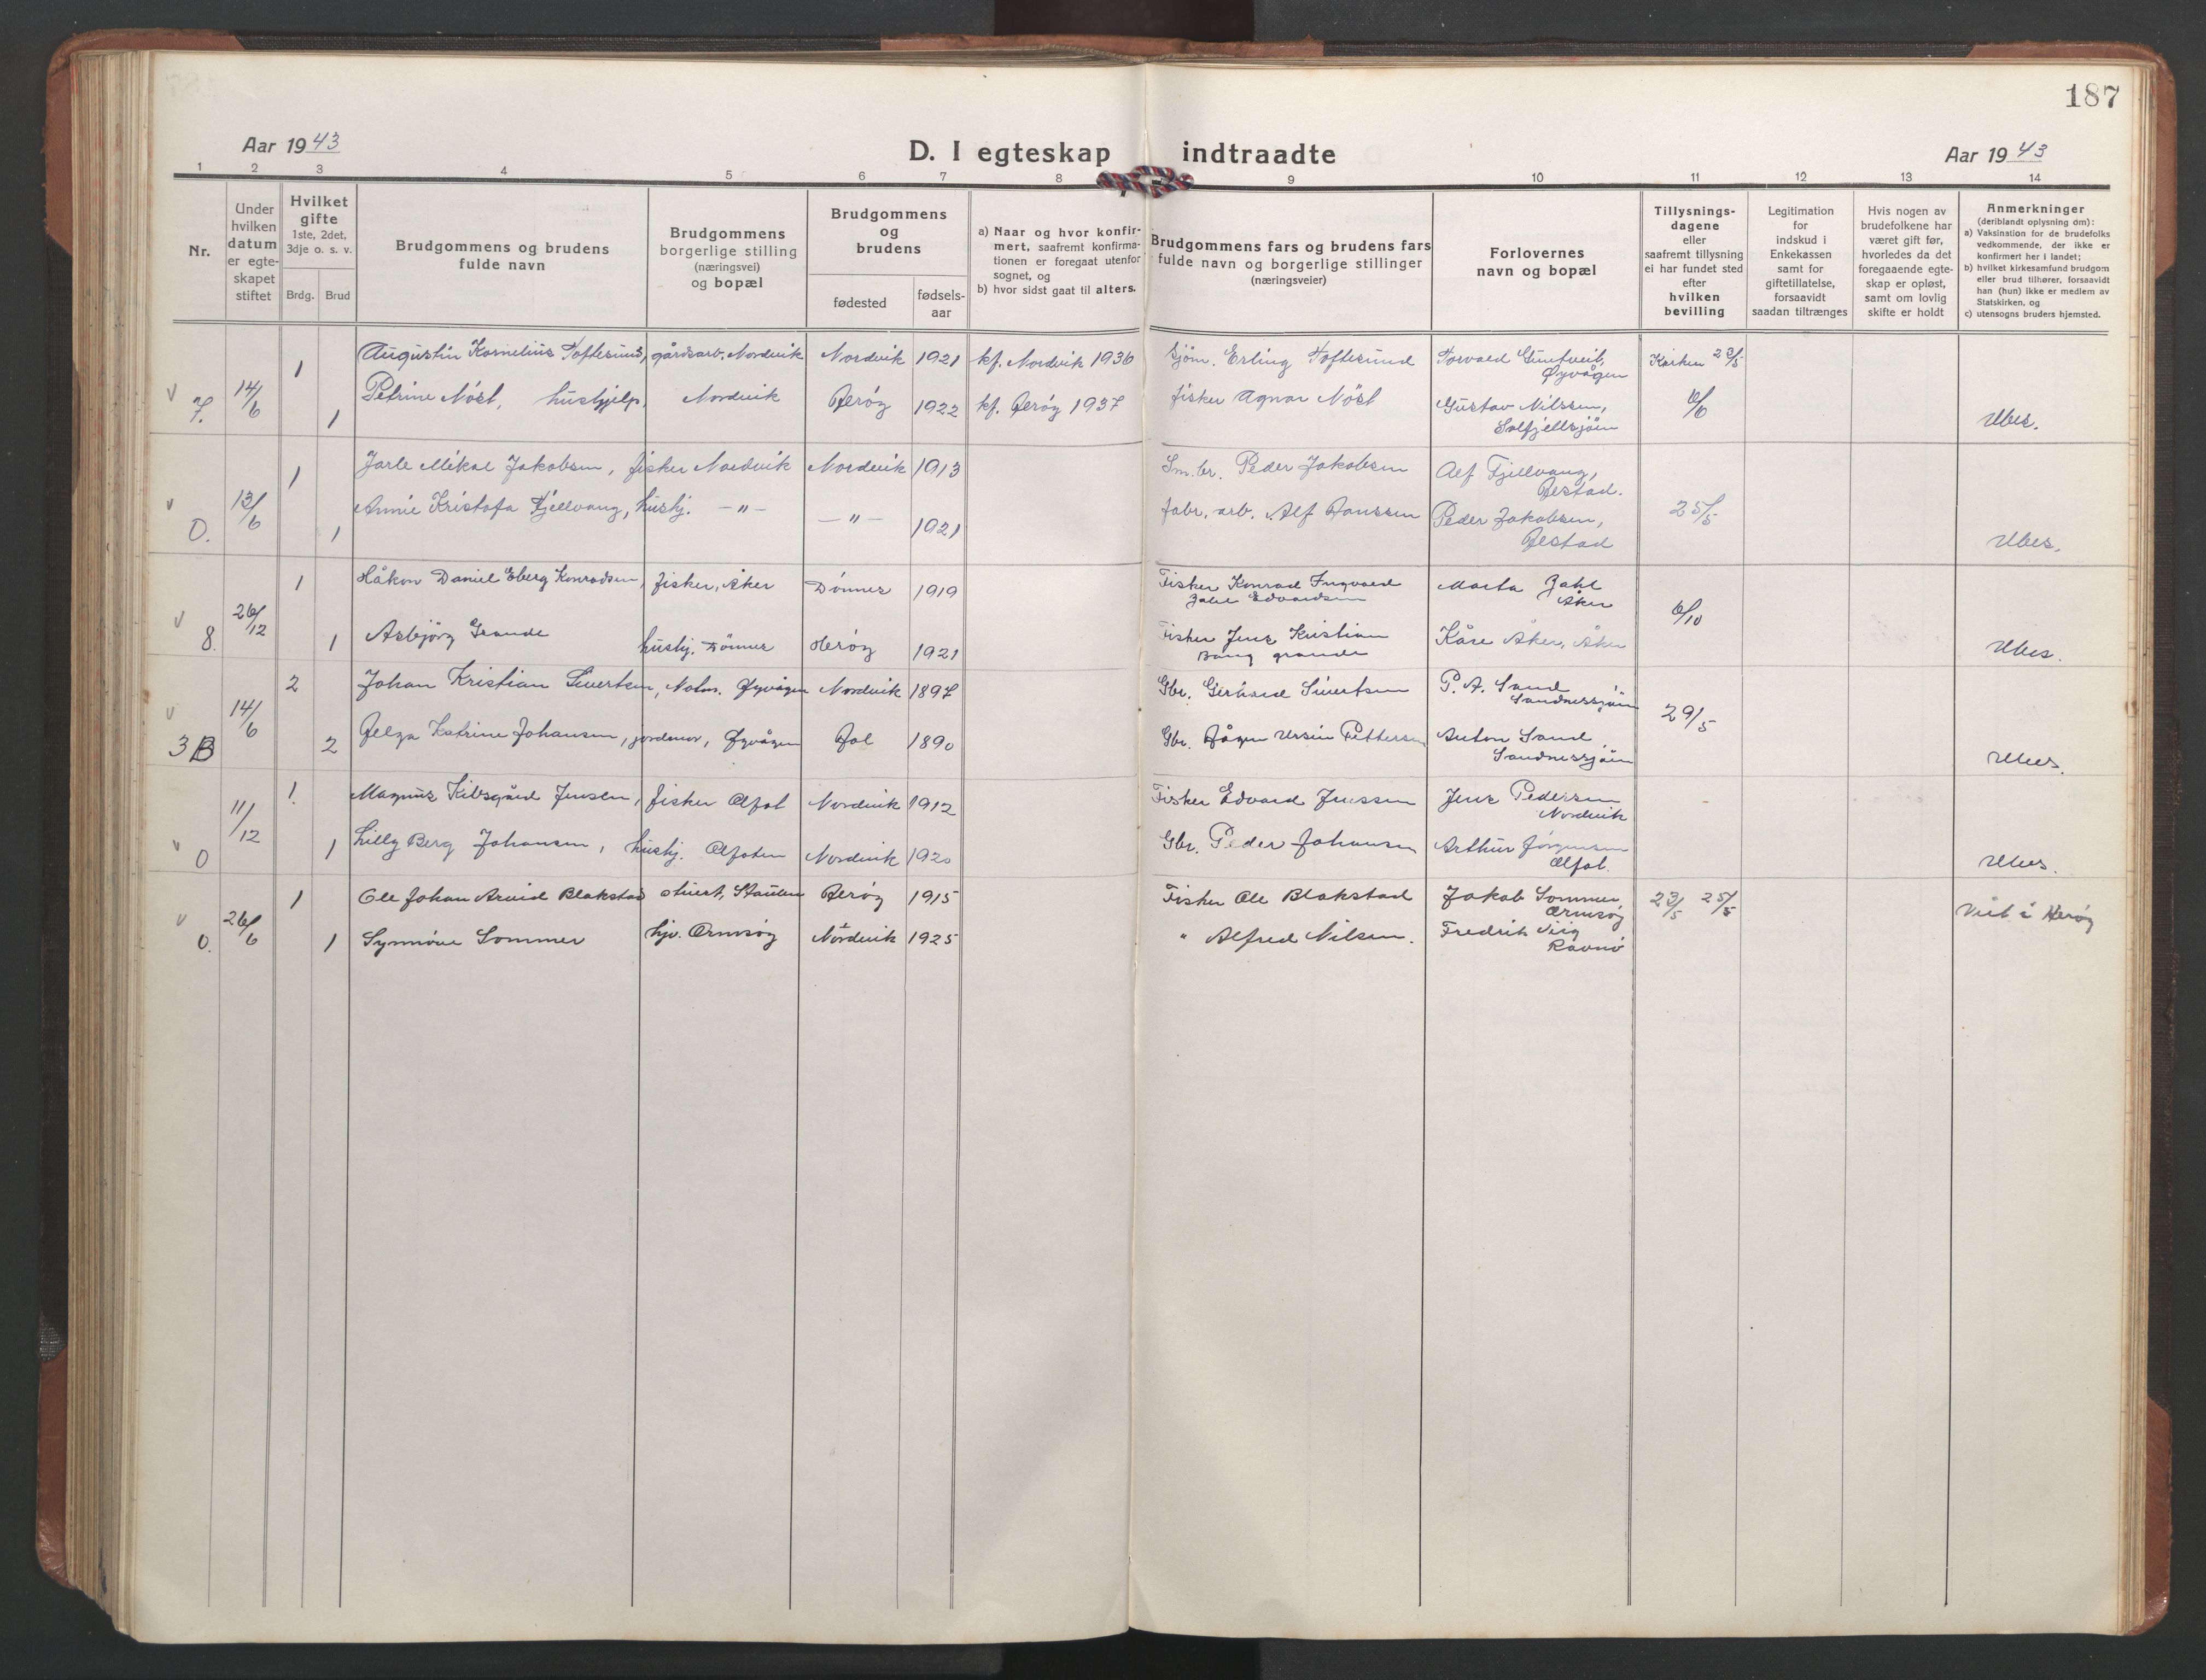 187
Aar 1943
D. I egteskap indtraadte
Aar 1943
1 2 3 4 5 6 7 8 9 10 11 12 13 14
Nr.
Under hvilken datum er egte-skapet stiftet
Hvilket gifte
1ste, 2det, 3dje o. s. v.
Brdg. Brud
Brudgommens og brudens fulde navn
Brudgommens borgerlige stilling (næringsvei) og bopæl
Brudgommens og brudens
fødested
fødsels-aar
a) Naar og hvor konfir-mert, saafremt konfirma-tionen er foregaat utenfor sognet, og
b) hvor sidst gaat til alters.
Brudgommens fars og brudens fars fulde navn og borgerlige stillinger
(næringsveier)
Forlovernes navn og bopæl
Tillysnings-dagene eller saafremt tillysning ei har fundet sted efter hvilken bevilling
Legitimation for indskud i Enkekassen samt for giftetillatelse, forsaavidt saadan tiltrænges
Hvis nogen av brudefolkene har været gift før, hvorledes da det foregaaende egte-skap er opløst, samt om lovlig skifte er holdt
Anmerkninger
(deriblandt oplysning om):
a) Vaksination for de brudefolks vedkommende, der ikke er konfirmert her i landet;
b) hvilket kirkesamfund brudgom eller brud tilhører, forsaavidt han (hun) ikke er medlem av Statskirken, og
c) utensogns bruders hjemsted.
1 Augustin Kornelius Toftesund, gårdsarb. Nordvik Nordvik 1921 kf. Nordvik 1936 Sjöm. Erling Toftesund Torvald Øyvågen 23/5
v 7. 14/6 1 Petrine Nöst, hushjelp, Nordvik Herøy 1922 kf. Herøy 1937 fisker Agnar Nöst Gustav Nilssen, Solfjellsjöen 6/6
1 Jarle Mikal Jakobsen, fisker Nordvik Nordvik 1913 Sm.br. Peder Jakobsen Alf Fjellvang, Hestad.
v 0. 13/6 1 Annie Kristofa Fjellvang, hushj. —"— —"— 1921 fabr. arb. Alf Hanssen Peder Jakobsen, Hestad 25/5
1 Håkon Daniel Eberg Konradsen, fisker, Åker Dönnes 1919 Fisker Konrad Ingvald Edvardsen Marta Dahl Åker
v 8. 26/12 1 Asbjörg Grande hushj. Dönnes Herøy 1921 Fisker Jens Kristian Bang grande Kåre Åker, Åker 6/10
2 Johan Kristian Sivertsen, Øyvågen Nordvik 1897 Gbr. Gerhard Sivertsen P. A. Sand Sandnessjöen
v 3B 14/6 2 Helga Katrine Johansen, jordmor, Øyvågen Hol 1890 Gbr. Hågen Ursin Pettersen Anton Sand Sandnessjöen 29/5
1 Magnus Kibsgård Jensen, fisker Nordvik 1912 Fisker Edvard Jenssen Jens Pedersen Nordvik
v 0 11/12 1 Lilly Berg Johansen, hushj. Nordvik 1920 Gbr. Peder Johansen Arthur Jörgensen
1 Ole Johan Arvid Blakstad stuert, Stauten Herøy 1915 Fisker Ole Blakstad Jakob Sommer Ormsøy 23/5 25/5
v 0. 26/6 1 Synnöve Sommer hjv. Ormsøy Nordvik 1925 " Alfred Nilsen. Fredrik Viig Ravnö